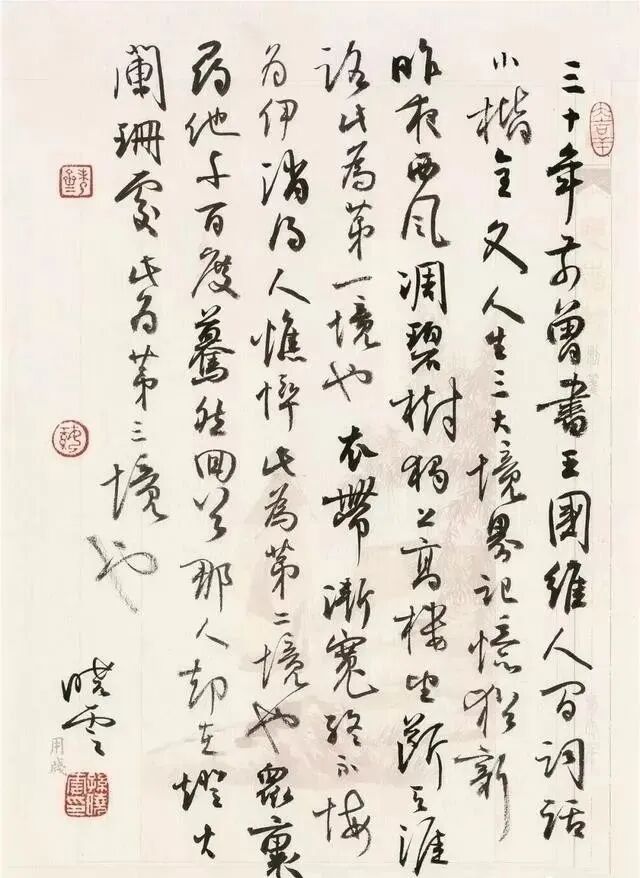 三十年前曾書王國維人间词话
小楷全文人生三大境界记憶猶新
昨夜西风凋碧樹獨上高樓望斷天涯
路此為第一境也衣帶漸寬終不悔
为伊消得人憔悴此為第二境也眾裏
尋他千百度驀然回首那人却在燈火
闌珊處此为第三境也
晓雲
用牋
孫曉雲印